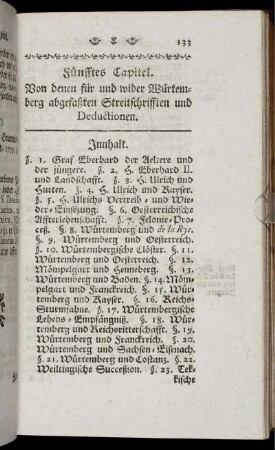 133
Fünfftes Capitel.
Von denen für und wider Würtem-
berg abgefaßten Streitschrifften und
Deductionen.
Innhalt.
§. 1. Graf Eberhard der Aeltere und
der jüngere. §. 2. H. Eberhard II.
und Landschafft. §. 3. H. Ulrich und
Hutten. §. 4. H. Ulrich und Kayser.
§. 5. H. Ulrichs Vertreib- und Wie-
der-Einsezung. §. 6. Oesterreichische
Affterlehenschafft. §. 7. Felonie-Pro-
ceß. §. 8. Würtemberg und de la Rye.
§. 9. Würtemberg und Oesterreich.
§. 10. Würtembergische Clöster. §. 11.
Würtemberg und Oesterreich. §. 12.
Mömpelgart und Henneberg. §. 13.
Würtemberg und Baden. §. 14. Möm-
pelgart und Franckreich. §. 15. Wür-
temberg und Kayser. §. 16. Reichs-
Sturmfahne. §. 17. Würtembergische
Lehens-Empfängniß. §. 18. Wür-
temberg und Reichsritterschafft. §. 19.
Würtemberg und Franckreich. §. 20.
Würtemberg und Sachsen-Eisenach.
§. 21. Würtemberg und Costanz. §. 22.
Weiltingische Succeßion. §. 23. Tek-
kische